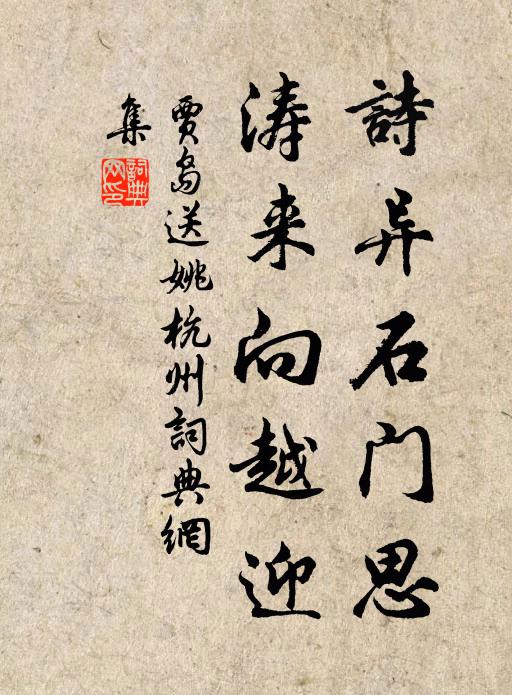 詩异石门思
涛来向越迎
賈島送姚杭州詞典網
集
詞典
网印